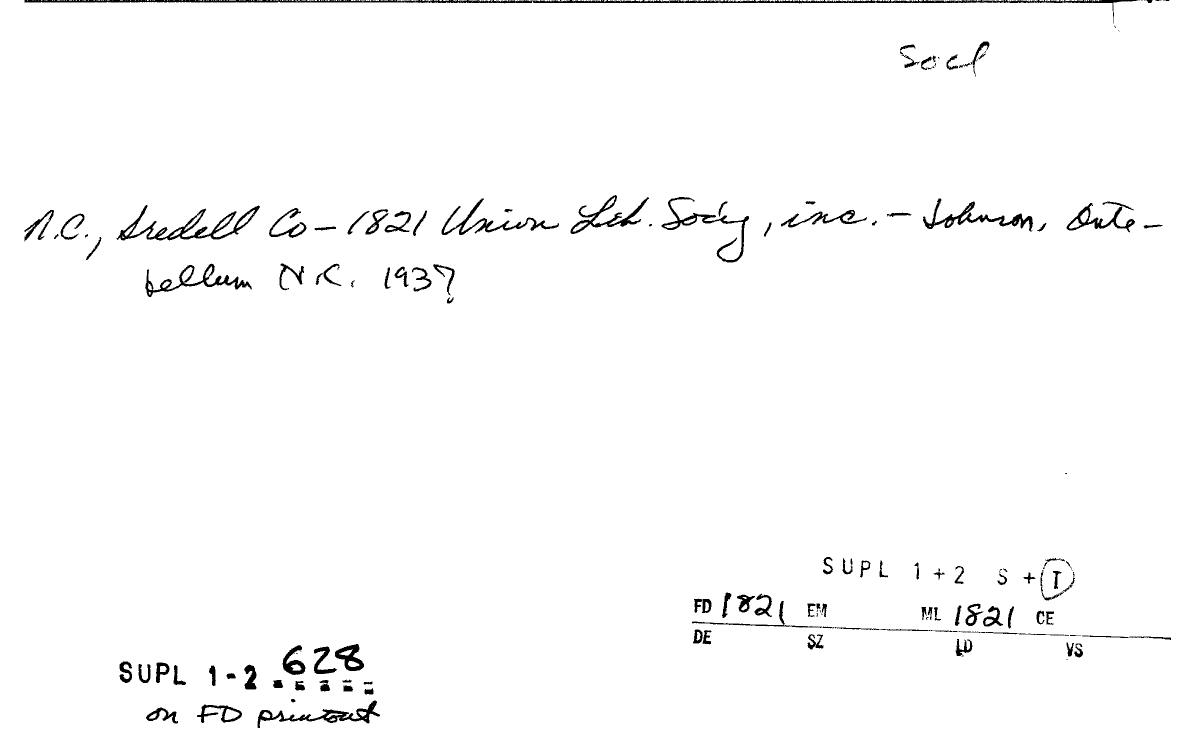 Socl
N.C., Iredell Co – 1821 Union Lib. Soc'y, inc. – Johnson, Ante-
bellum N.C. 1937
SUPL 1+2 S + T
FD 1821 EM ML 1821 CE
DE SZ LD VS
SUPL 1-2 .628
on FD printout